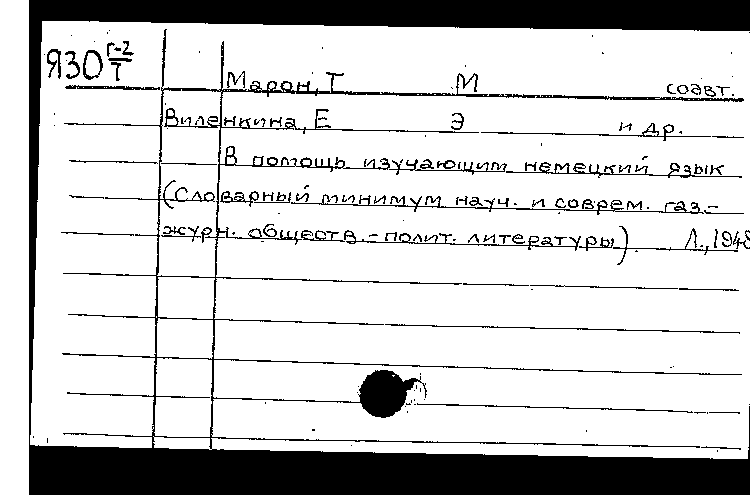 Я30 Г-2/Т
Марон, Т М соавт.
Виленкина, Е Э и др.
В помощь изучающим немецкий язык
(Словарный минимум науч. и соврем. газ.-
журн. обществ.-полит. литературы) Л., 1948